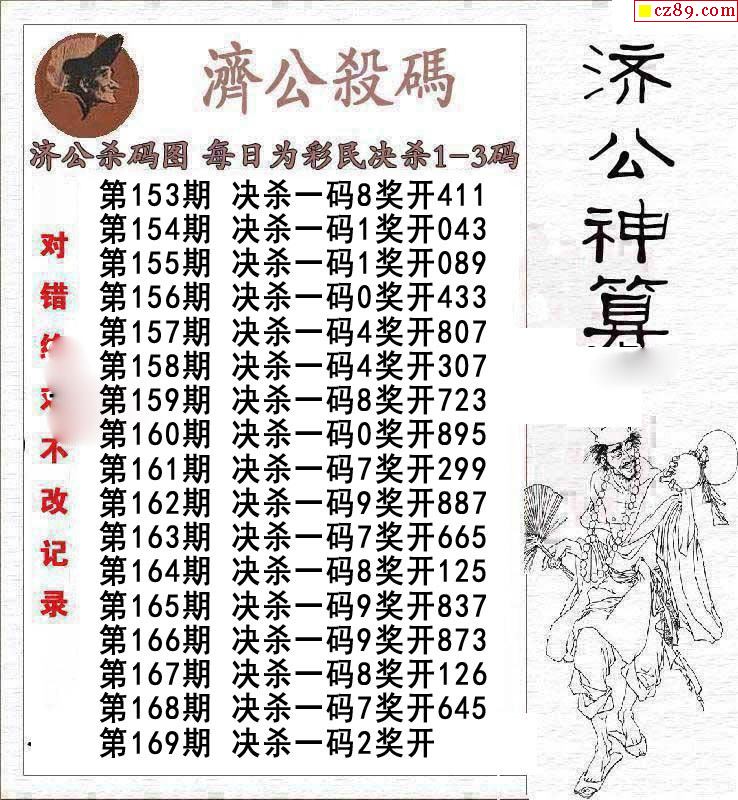 cz89.com
濟公殺碼
济公杀码图 每日为彩民决杀1-3码
第153期 决杀一码8奖开411
第154期 决杀一码1奖开043
第155期 决杀一码1奖开089
第156期 决杀一码0奖开433
第157期 决杀一码4奖开807
第158期 决杀一码4奖开307
第159期 决杀一码8奖开723
第160期 决杀一码0奖开895
第161期 决杀一码7奖开299
第162期 决杀一码9奖开887
第163期 决杀一码7奖开665
第164期 决杀一码8奖开125
第165期 决杀一码9奖开837
第166期 决杀一码9奖开873
第167期 决杀一码8奖开126
第168期 决杀一码7奖开645
第169期 决杀一码2奖开
对错不改记录
济公神算